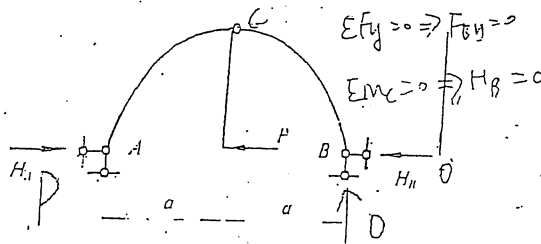 C
ΣFy=0 ⇒ FBy=0
ΣMc=0 ⇒ HB=0
A
P
B
HA
HB
0
P
a
a
0